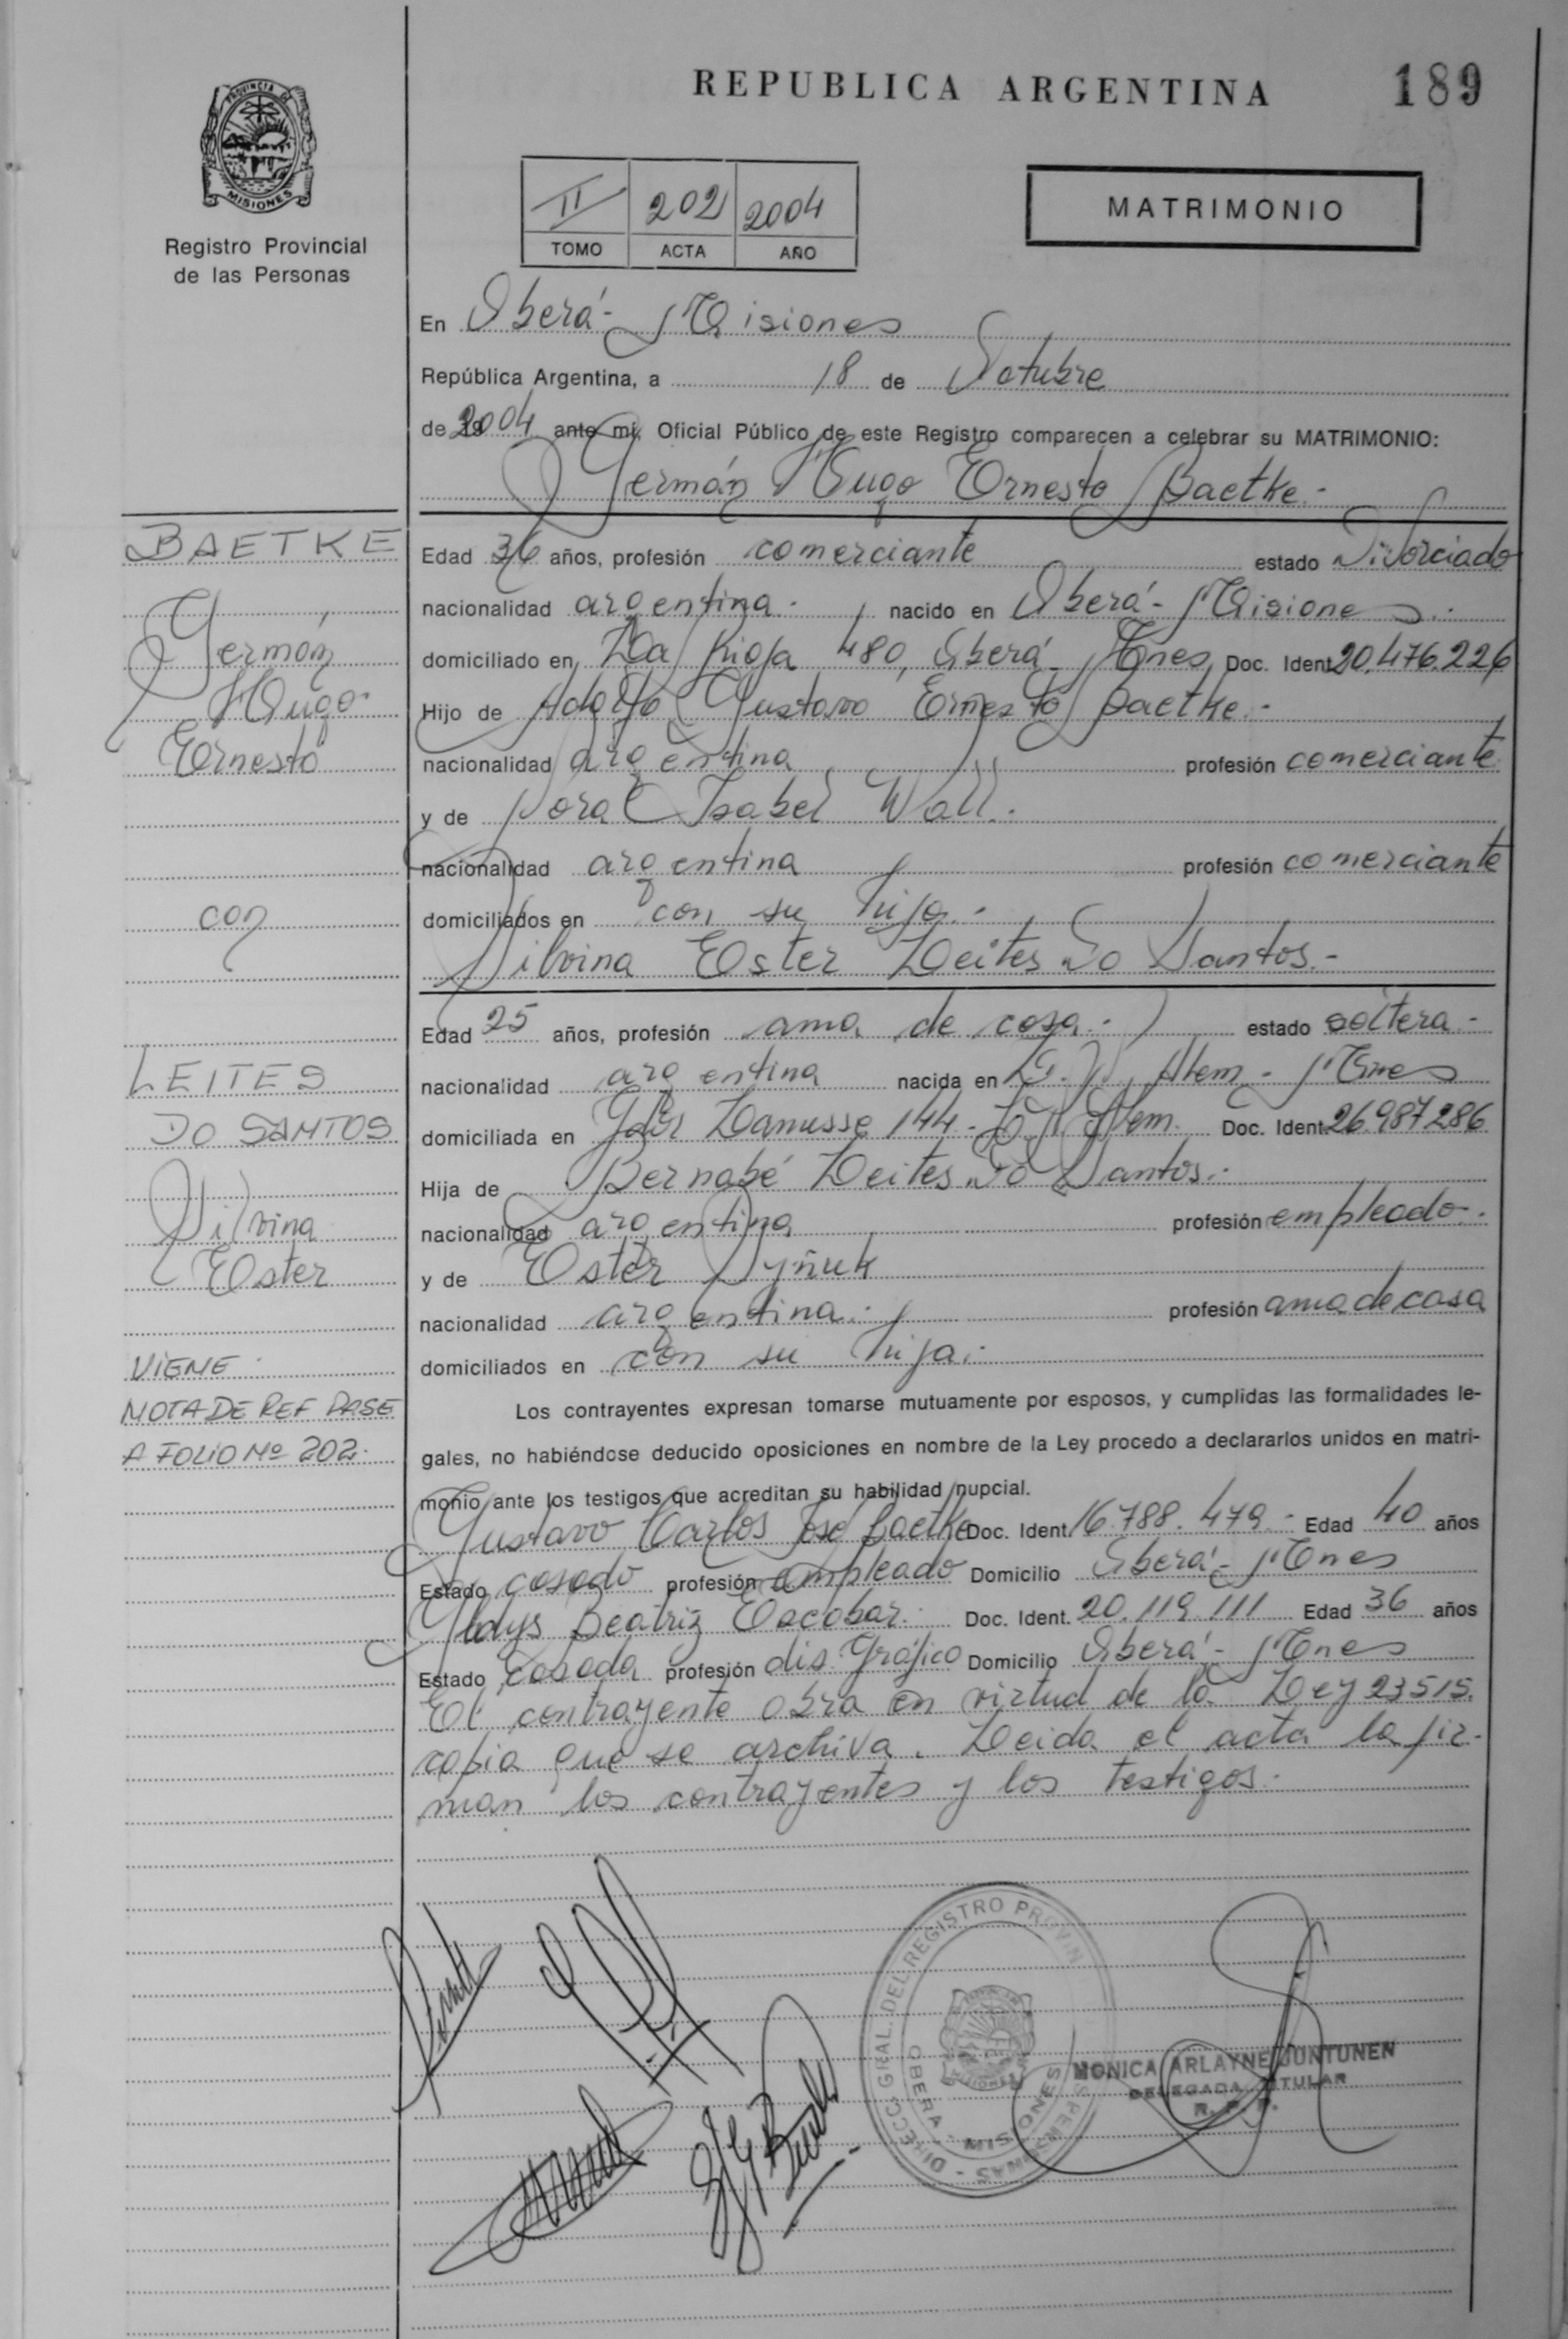 REPUBLICA ARGENTINA 189
PROVINCIA DE
MISIONES
Registro Provincial
de las Personas
II 202 2004
TOMO ACTA AÑO
MATRIMONIO
En Oberá - Misiones
República Argentina, a 18 de Octubre
de 2004 ante mí, Oficial Público de este Registro comparecen a celebrar su MATRIMONIO:
Germán Hugo Ernesto Baetke.-
BAETKE
Germán
Hugo
Ernesto
con
LEITES
DO SANTOS
Silvina
Ester
VIENE
NOTA DE REF PASE
A FOLIO Nº 202.
Edad 36 años, profesión comerciante estado Divorciado
nacionalidad argentina.- nacido en Oberá - Misiones.-
domiciliado en La Rioja 480, Oberá - Mnes, Doc. Ident. 20.476.226
Hijo de Adolfo Gustavo Ernesto Baetke.-
nacionalidad argentina profesión comerciante
y de Nora Isabel Wall.-
nacionalidad argentina profesión comerciante
domiciliados en con su hijo.-
Silvina Ester Leites Do Santos.-
Edad 25 años, profesión ama de casa.- estado soltera-
nacionalidad argentina nacida en L.N. Alem - Mnes
domiciliada en Lamusse 144 - L.N. Alem. Doc. Ident. 26.987.286
Hija de Bernabé Leites Do Santos.-
nacionalidad argentina profesión empleado.-
y de Ester
nacionalidad argentina.- profesión ama de casa
domiciliados en con su hija.-
Los contrayentes expresan tomarse mutuamente por esposos, y cumplidas las formalidades le-
gales, no habiéndose deducido oposiciones en nombre de la Ley procedo a declararlos unidos en matri-
monio ante los testigos que acreditan su habilidad nupcial.
Gustavo Carlos José Baetke Doc. Ident. 16.788.479.- Edad 40 años
Estado casado profesión empleado Domicilio Oberá - Mnes
Gladys Beatriz Escobar.- Doc. Ident. 20.119.111 Edad 36 años
Estado casada profesión dis. Gráfico Domicilio Oberá - Mnes
El contrayente obra en virtud de la Ley 23515.
copia que se archiva. Leida el acta la fir-
man los contrayentes y los testigos.-
DIRECC. GRAL. DEL REGISTRO PROVIN
PERSONAS
OBERA - MISIONES
MONICA ARLAYNE JUNTUNEN
DELEGADA TITULAR
R. P. P.